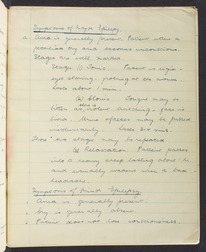 Symptoms of Major Epilepsy.
a. Aura is generally present. Patient utters a
peculiar cry and becomes unconscious.
Stages are well marked
Stage (1) Tonic. Patient is rigid -
eyes staring,
lasts about 1 min.
(2) Clonic Tongue may be
bitten as violent twitching. face is
livid. Urine & faeces may be passed
involuntarily - lasts
stages may be repeated
(3) Relaxation Patient passes
into a heavy sleep lasting about
and usually wakes with a bad
headache.
Symptoms of Minor Epilepsy
Aura is generally present
Cry is generally absent
Patient does not lose consciousness.